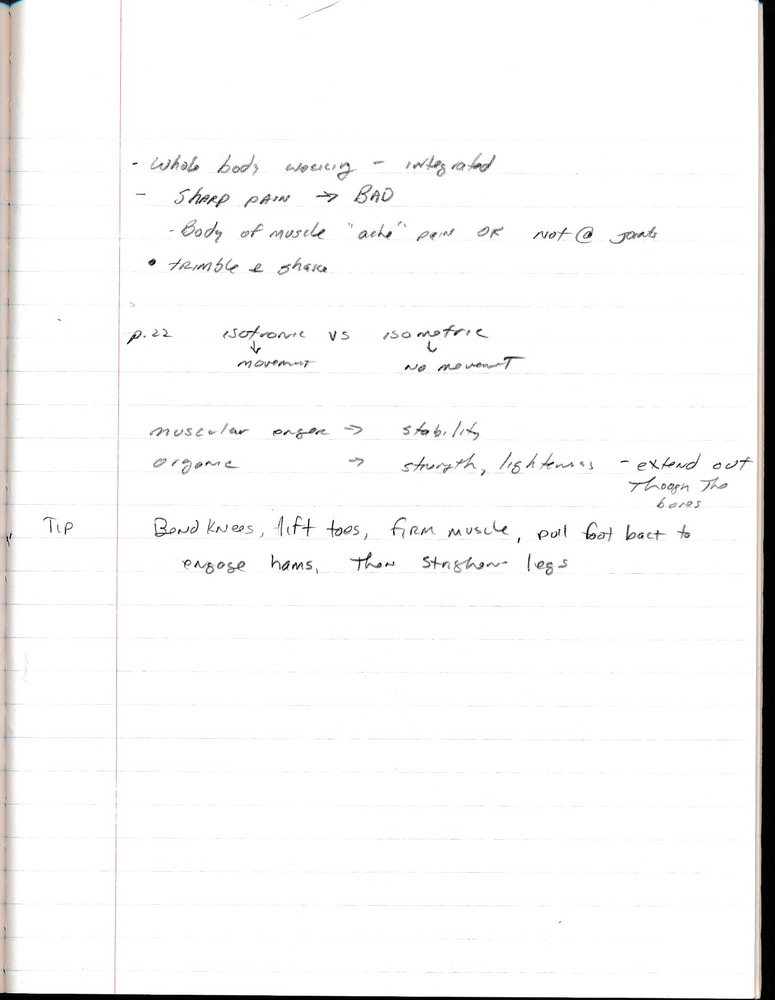 - Whole body working - integrated
- SHARP PAIN → BAD
- Body of muscle "ache" pain OK not @ joints
• tremble & shake
p.22 isotronic vs isometric
↓ ↓
movement NO movement
muscular energy → stability
organic → strength, lightness - extend out
Though The
bones
TIP Bend Knees, lift toes, firm muscle, pull foot back to
engage hams, then straighten legs